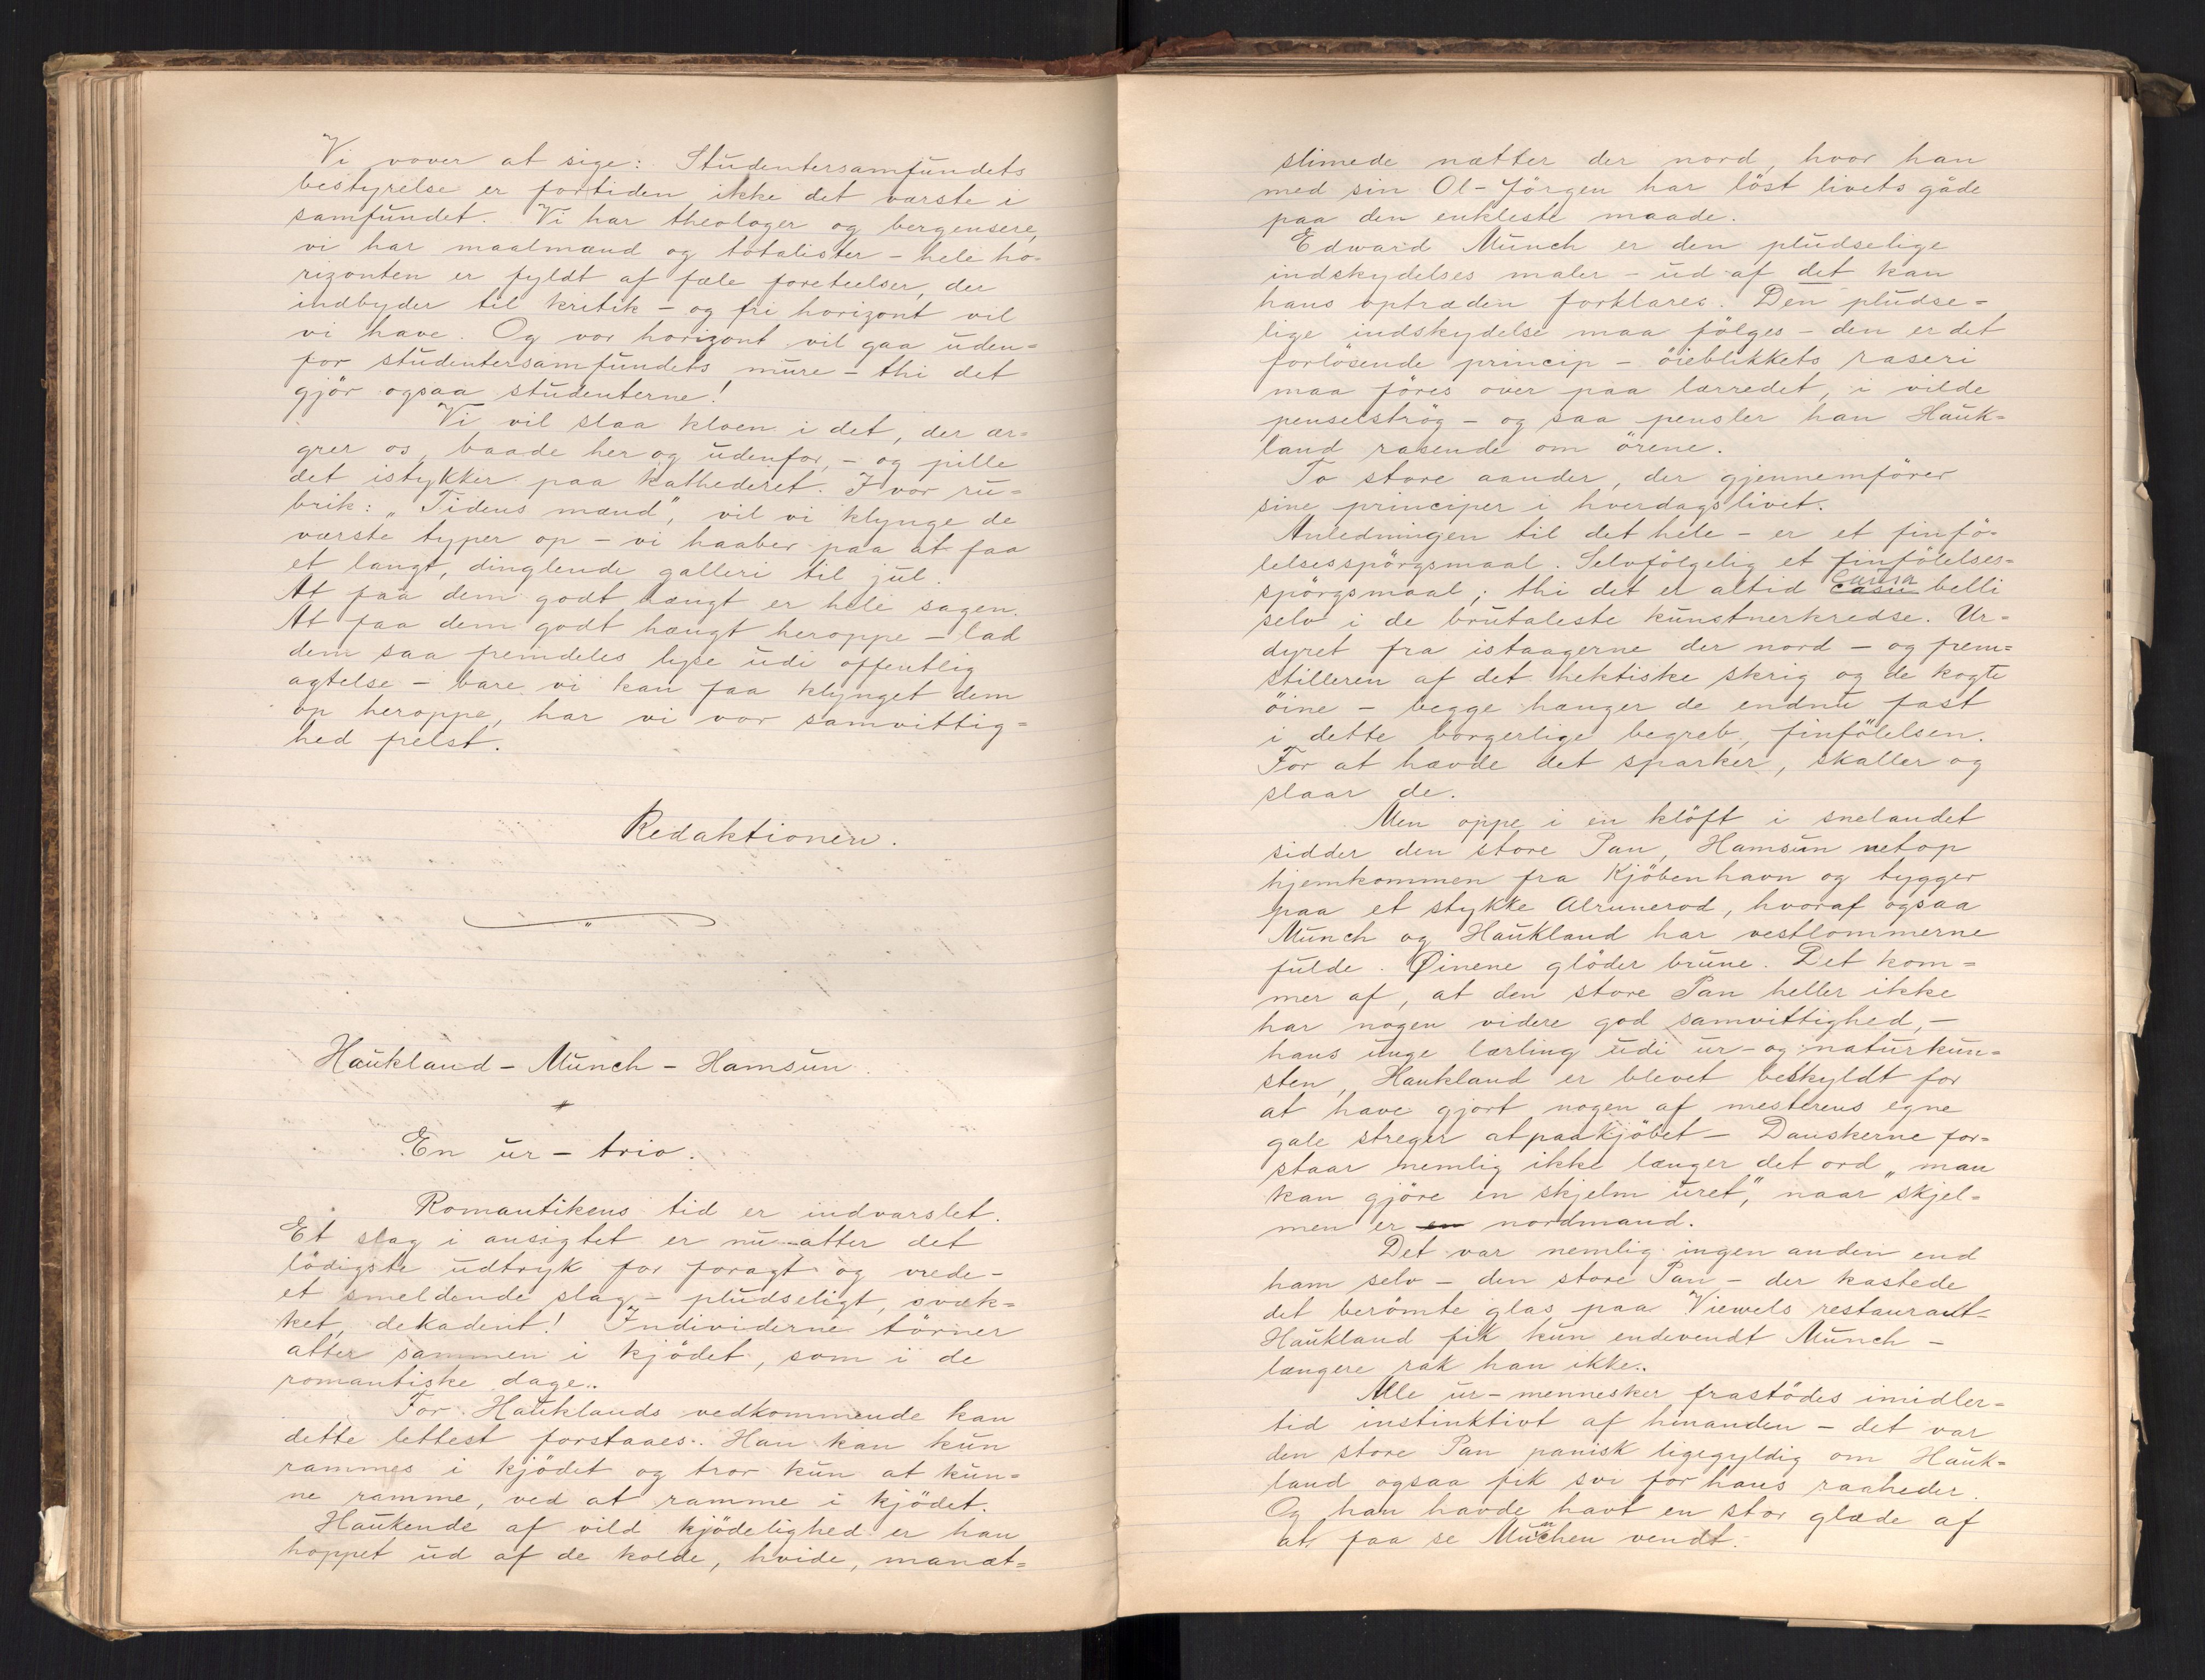 Vi vover at sige: Studentersamfundets
bestyrelse er fortiden ikke det værste i
samfundet. Vi har theologer og bergensere,
vi har maalmænd og totalister – hele ho-
rizonten er fyldt af fæle foreteelser, der
indbyder til kritik – og fri horizont vil
vi have. Og vor horizont vil gaa uden=
for studentersamfundets mure – thi det
gjör ogsaa studenterne!
Vi vil slaa kloen i det, der ær=
grer os, baade her og udenfor, – og pille
det istykker paa kathederet. I vor ru=
brik: „Tidens mænd", vil vi klynge de
værste typer op – vi haaber paa at faa
et langt, dinglende galleri til jul.
At faa dem godt hængt er hele sagen.
At faa dem godt hængt heroppe – lad
dem saa fremdeles lyse udi offentlig
agtelse – bare vi kan faa klynget dem
op heroppe, har vi vor samvittig=
hed frelst.
Redaktionen.
Haukland – Munch – Hamsun.
En ur – trio.
Romantikens tid er indvarslet.
Et slag i ansigtet er nu atter det
lödigste udtryk for foragt og vrede –
et smeldende slag – pludseligt, svæk=
ket, dekadent! Individerne törner
atter sammen i kjödet, som i de
romantiske dage..
For Hauklands vedkommende kan
dette lettest forstaaes. Han kan kun
rammes i kjödet og tror kun at kun=
ne ramme, ved at ramme i kjödet.
Haukende af vild kjödelighed er han
hoppet ud af de kolde, hvide, manæt=
slimede nætter der nord, hvor han
med sin Ol-Jörgen har löst livets gåde
paa den enkleste maade.
Edward Munch er den pludselige
indskydelses maler – ud af det kan
hans optræden forklares. Den pludse=
lige indskydelse maa fölges – den er det
forlösende princip – öieblikkets raseri
maa föres over paa lærredet, i vilde
penselströg – og saa pensler han Hauk=
land rasende om örene.
To store aander, der gjennemförer
sine principer i hverdagslivet.
Anledningen til det hele – er et finfö-
lelsesspörgsmaal. Selvfölgelig et finfölelses=
spörgsmaal; thi det er altid casu causa belli
selv i de brutaleste kunstnerkredse. Ur=
dyret fra istaagerne der nord – og frem=
stilleren af det hektiske skrig og de kogte
öine – begge hænger de endnu fast
i dette borgerlige begreb, finfölelsen.
For at hævde det sparker, skaller og
slaar de.
Men oppe i en klöft i snelandet
sidder den store Pan, Hamsun netop
hjemkommen fra Kjöbenhavn og tygger
paa et stykke Alrunerod, hvoraf ogsaa
Munch og Haukland har vestlommerne
fulde. Øinene glöder brune. Det kom=
mer af, at den store Pan heller ikke
har nogen videre god samvittighed, –
hans unge lærling udi ur- og naturkun=
sten, Haukland er blevet beskyldt for
at have gjort nogen af mesterens egne
gale streger atpaakjöbet – Danskerne for=
staar nemlig ikke længer det ord „man
kan gjöre en skjelm uret," naar skjel=
men er en nordmand.
Det var nemlig ingen anden end
ham selv – den store Pan – der kastede
det berömte glas paa Viewels restaurant –
Haukland fik kun endevendt Munch –
længere rak han ikke..
Alle ur-mennesker frastödes imidler=
tid instinktivt af hinanden – det var
den store Pan panisk ligegyldig om Hauk=
land ogsaa fik svi for hans raaheder.
Og han havde havt en stor glæde af
at faa se Munchen vendt.